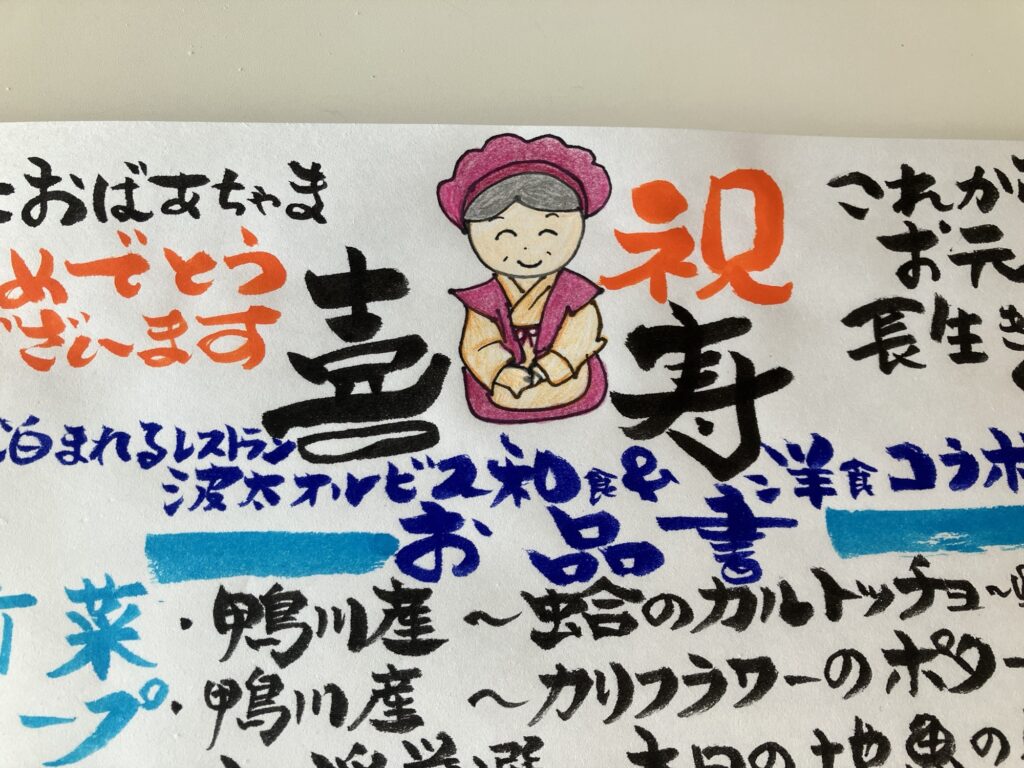 おばあちゃま
めでとう
ございます
祝
喜寿
これか
お元
長生き
泊まれるレストラン
波太オルビス和食&洋食コラボ
お品書
菜・鴨川産～蛤のカルトッチョ～
ープ・鴨川産～カリフラワーのポター
本日の地魚の